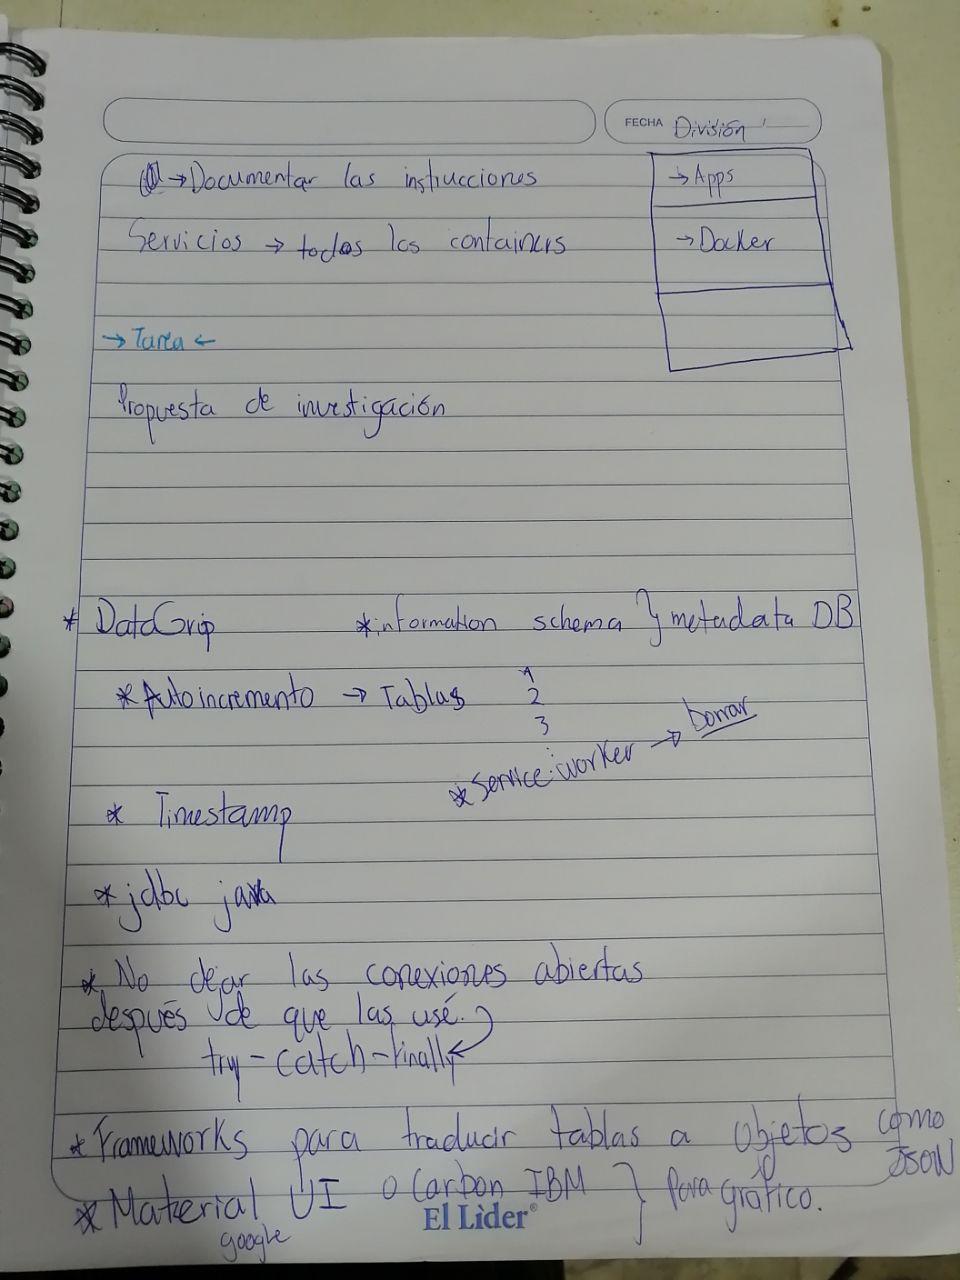 FECHA División
→ Documentar las instrucciones
→ Apps
Servicios → todos los containers
→ Docker
→ Tarea ←
Propuesta de investigación
* DataGrip
* information schema } metadata DB
* Autoincremento → Tablas
1
2
3
* Service-worker → borrar
* Timestamp
* jdbc java
* No dejar las conexiones abiertas
después de que las usé.
try-catch-finally
* Frameworks para traducir tablas a objetos como
JSON
* Material UI o Carbon IBM } Para gráfico.
google
El Lider®